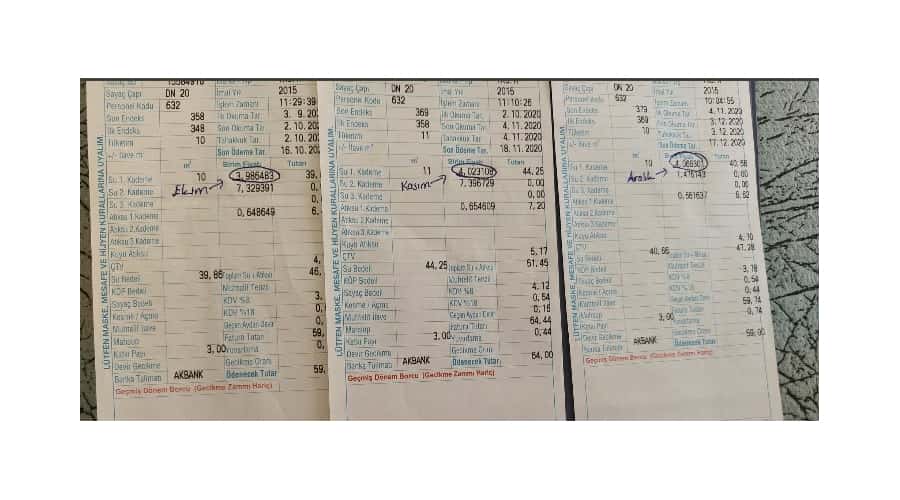 Sayaç Çapı DN 20 İmal Yılı 2015
Personel Kodu 632 İşlem Zamanı 11:29:39
Son Endeks 358 İlk Okuma Tar. 3. 9.20
İlk Endeks 348 Son Okuma Tar. 2.10.20
Tüketim 10 Tahakkuk Tar. 2.10.20
+/- İlave m³ Son Ödeme Tar. 16.10.20
m³ Birim Fiyatı Tutarı
Su 1. Kademe 10 3,986483 39,
Su 2. Kademe 7,329391 0,
Ekim
Su 3. Kademe 0,
Atıksu 1.Kademe 0,648649 6,
Atıksu 2.Kademe
Atıksu 3.Kademe
Kuyu Atıksu
ÇTV 4,
Su Bedeli 39,86 Toplam Su+Atıksu 46,
KÖP Bedeli Muhtelif Tenzil
Sayaç Bedeli KDV %8 3,
Kesme / Açma KDV %18 0,
Muhtelif İlave Geçen Aydan Devir 0,
Mahsup Fatura Tutarı 59,
Katkı Payı 3,00 Yuvarlama 0,
Devir Gecikme Gecikme Oranı
Banka Talimatı AKBANK Ödenecek Tutar 59,
Geçmiş Dönem Borcu (Gecikme Zammı Hariç)
LÜTFEN MASKE, MESAFE VE HİJYEN KURALLARINA UYALIM.
Sayaç Çapı DN 20 İmal Yılı 2015
Personel Kodu 632 İşlem Zamanı 11:10:26
Son Endeks 369 İlk Okuma Tar. 2.10.2020
İlk Endeks 358 Son Okuma Tar. 4.11.2020
Tüketim 11 Tahakkuk Tar. 4.11.2020
+/- İlave m³ Son Ödeme Tar. 18.11.2020
m³ Birim Fiyatı Tutarı
Su 1. Kademe 11 4,023108 44,25
Su 2. Kademe 7,396729 0,00
Kasım
Su 3. Kademe 0,00
Atıksu 1.Kademe 0,654609 7,20
Atıksu 2.Kademe
Atıksu 3.Kademe
Kuyu Atıksu
ÇTV 5,17
Su Bedeli 44,25 Toplam Su+Atıksu 51,45
KÖP Bedeli Muhtelif Tenzil
Sayaç Bedeli KDV %8 4,12
Kesme / Açma KDV %18 0,54
Muhtelif İlave Geçen Aydan Devir 0,16
Mahsup Fatura Tutarı 64,44
Katkı Payı 3,00 Yuvarlama 0,44
Devir Gecikme Gecikme Oranı
Banka Talimatı AKBANK Ödenecek Tutar 64,00
Geçmiş Dönem Borcu (Gecikme Zammı Hariç)
LÜTFEN MASKE, MESAFE VE HİJYEN KURALLARINA UYALIM.
Sayaç Çapı DN 20 İmal Yılı 2015
Personel Kodu 632 İşlem Zamanı 10:04:55
Son Endeks 379 İlk Okuma Tar. 4.11.2020
İlk Endeks 369 Son Okuma Tar. 3.12.2020
Tüketim 10 Tahakkuk Tar. 3.12.2020
+/- İlave m³ Son Ödeme Tar. 17.12.2020
m³ Tutarı
Su 1. Kademe 10 40,66
Su 2. Kademe 0,00
Aralık
Su 3. Kademe 0,00
Atıksu 1.Kademe 0,661637 6,62
Atıksu 2.Kademe
Atıksu 3.Kademe
Kuyu Atıksu
ÇTV 4,70
Su Bedeli 40,66 Toplam Su+Atıksu 47,28
KÖP Bedeli Muhtelif Tenzil
Sayaç Bedeli KDV %8 3,78
Kesme / Açma KDV %18 0,54
Muhtelif İlave Geçen Aydan Devir 0,44
Mahsup Fatura Tutarı 59,74
Katkı Payı 3,00 Yuvarlama 0,74
Devir Gecikme Gecikme Oranı
Banka Talimatı AKBANK Ödenecek Tutar 59,00
Geçmiş Dönem Borcu (Gecikme Zammı Hariç)
LÜTFEN MASKE, MESAFE VE HİJYEN KURALLARINA UYALIM.